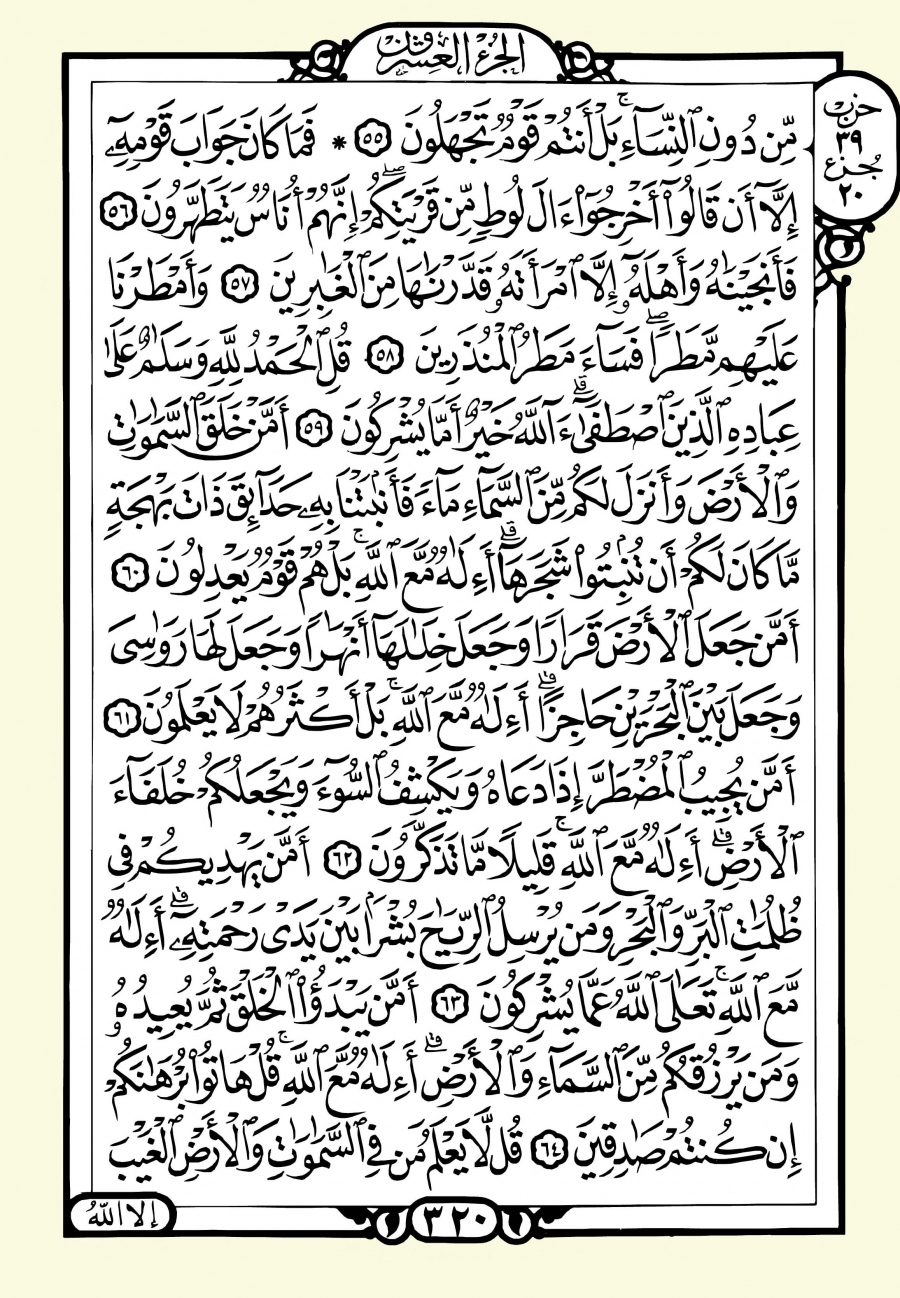 الجزء العشرون
حزب
٣٩
جزء
٢٠
مِّن دُونِ ٱلنِّسَآءِۚ بَلۡ أَنتُمۡ قَوۡمٞ تَجۡهَلُونَ ٥٥ * فَمَا كَانَ جَوَابَ قَوۡمِهِۦٓ
إِلَّآ أَن قَالُوٓاْ أَخۡرِجُوٓاْ ءَالَ لُوطٖ مِّن قَرۡيَتِكُمۡۖ إِنَّهُمۡ أُنَاسٞ يَتَطَهَّرُونَ ٥٦
فَأَنجَيۡنَٰهُ وَأَهۡلَهُۥٓ إِلَّا ٱمۡرَأَتَهُۥ قَدَّرۡنَٰهَا مِنَ ٱلۡغَٰبِرِينَ ٥٧ وَأَمۡطَرۡنَا
عَلَيۡهِم مَّطَرٗاۖ فَسَآءَ مَطَرُ ٱلۡمُنذَرِينَ ٥٨ قُلِ ٱلۡحَمۡدُ لِلَّهِ وَسَلَٰمٌ عَلَىٰ
عِبَادِهِ ٱلَّذِينَ ٱصۡطَفَىٰٓۗ ءَآللَّهُ خَيۡرٌ أَمَّا يُشۡرِكُونَ ٥٩ أَمَّنۡ خَلَقَ ٱلسَّمَٰوَٰتِ
وَٱلۡأَرۡضَ وَأَنزَلَ لَكُم مِّنَ ٱلسَّمَآءِ مَآءٗ فَأَنۢبَتۡنَا بِهِۦ حَدَآئِقَ ذَاتَ بَهۡجَةٖ
مَّا كَانَ لَكُمۡ أَن تُنۢبِتُواْ شَجَرَهَآۗ أَءِلَٰهٞ مَّعَ ٱللَّهِۚ بَلۡ هُمۡ قَوۡمٞ يَعۡدِلُونَ ٦٠
أَمَّن جَعَلَ ٱلۡأَرۡضَ قَرَارٗا وَجَعَلَ خِلَٰلَهَآ أَنۡهَٰرٗا وَجَعَلَ لَهَا رَوَٰسِيَ
وَجَعَلَ بَيۡنَ ٱلۡبَحۡرَيۡنِ حَاجِزًاۗ أَءِلَٰهٞ مَّعَ ٱللَّهِۚ بَلۡ أَكۡثَرُهُمۡ لَا يَعۡلَمُونَ ٦١
أَمَّن يُجِيبُ ٱلۡمُضۡطَرَّ إِذَا دَعَاهُ وَيَكۡشِفُ ٱلسُّوٓءَ وَيَجۡعَلُكُمۡ خُلَفَآءَ
ٱلۡأَرۡضِۗ أَءِلَٰهٞ مَّعَ ٱللَّهِۚ قَلِيلٗا مَّا تَذَكَّرُونَ ٦٢ أَمَّن يَهۡدِيكُمۡ فِي
ظُلُمَٰتِ ٱلۡبَرِّ وَٱلۡبَحۡرِ وَمَن يُرۡسِلُ ٱلرِّيَٰحَ بُشۡرَۢا بَيۡنَ يَدَيۡ رَحۡمَتِهِۦٓۗ أَءِلَٰهٞ
مَّعَ ٱللَّهِۚ تَعَٰلَى ٱللَّهُ عَمَّا يُشۡرِكُونَ ٦٣ أَمَّن يَبۡدَؤُاْ ٱلۡخَلۡقَ ثُمَّ يُعِيدُهُۥ
وَمَن يَرۡزُقُكُم مِّنَ ٱلسَّمَآءِ وَٱلۡأَرۡضِۗ أَءِلَٰهٞ مَّعَ ٱللَّهِۚ قُلۡ هَاتُواْ بُرۡهَٰنَكُمۡ
إِن كُنتُمۡ صَٰدِقِينَ ٦٤ قُل لَّا يَعۡلَمُ مَن فِي ٱلسَّمَٰوَٰتِ وَٱلۡأَرۡضِ ٱلۡغَيۡبَ
إلا اللهُ
٣٢٠